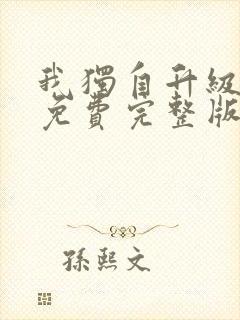 我獨自升級
免費完整版
孫熙文